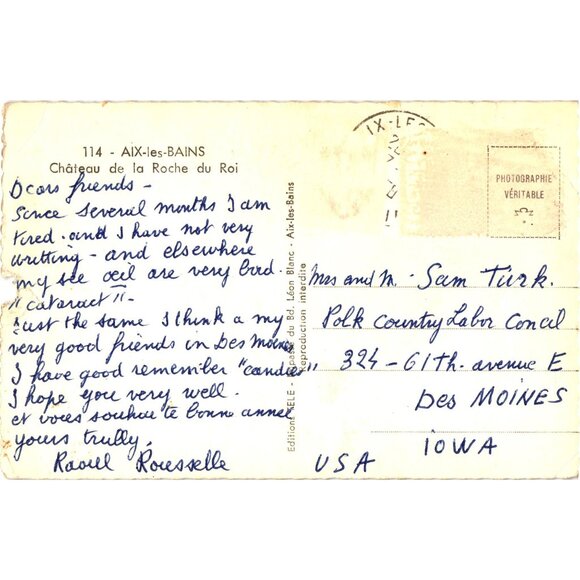 114 - AIX-les-BAINS
Château de la Roche du Roi
Dears friends -
Since several months I am
tired. and I have not very
writting - and elsewhere
my see œil are very bad.
"cataract" -
Just the same I think a my
very good friends in Des Moines
I have good remember "candies"
I hope you very well.
et vous souhaite bonne année
yours trully,
Raoul Rousselle
Bd. Léon Blanc - Aix-les-Bains
Reproduction interdite
IX-LES
PHOTOGRAPHIE
VÉRITABLE
Mrs and M. Sam Turk.
Polk Country Labor Concil
324 - 61Th. avenue E
Des MOINES
IOWA
USA